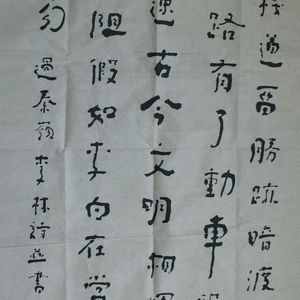 道勝疏暗渡
路有了動車
古今文明相
阻假如李白在當
過秦嶺李林詩並書